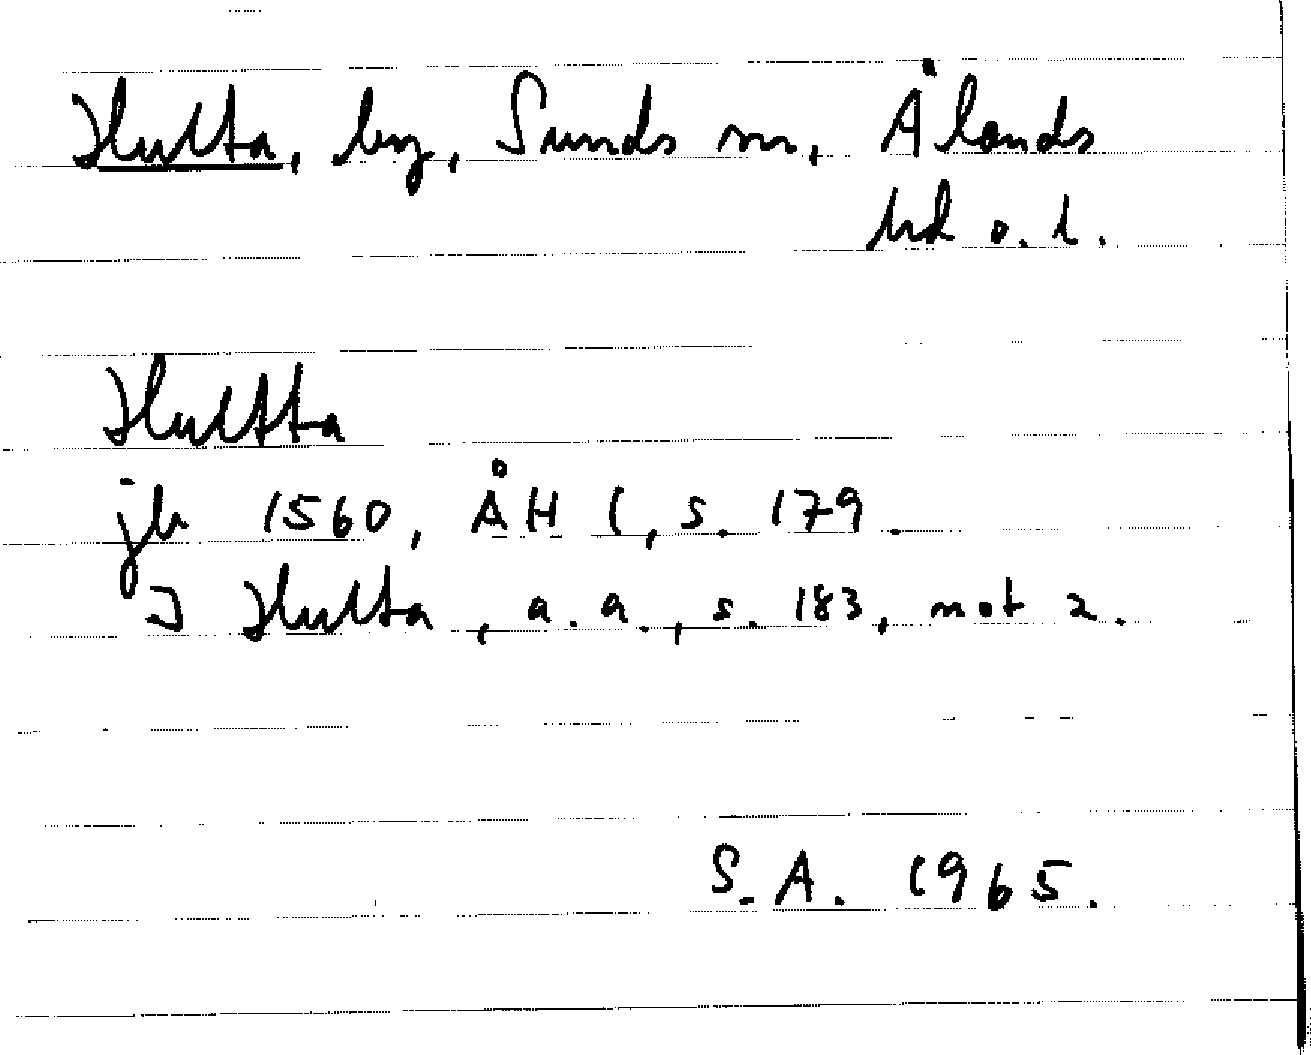 Hulta, by, Sunds sn, Ålands
hd o. l.
Hultta
jb 1560, ÅH I, s. 179.
J Hulta, a. a., s. 183, not 2.
S. A. 1965.